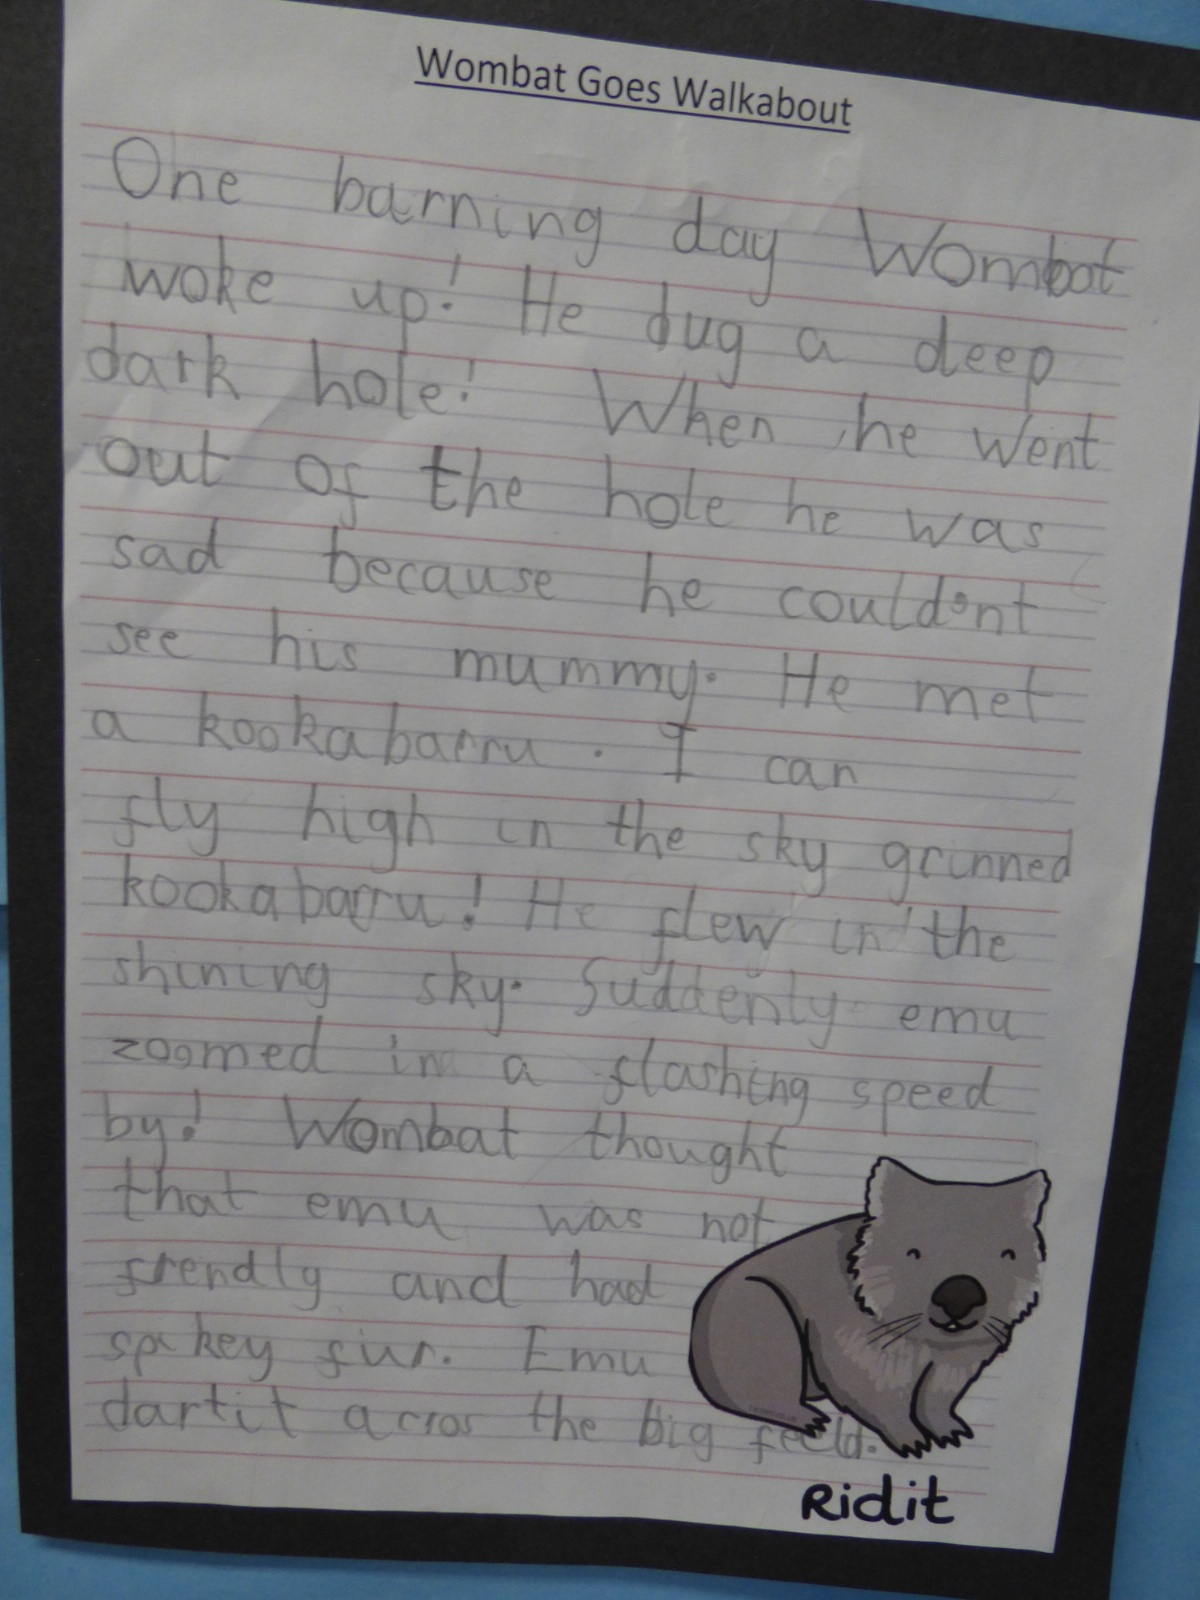 Wombat Goes Walkabout
One barning day Wombat
woke up! He dug a deep
dark hole! When he went
out of the hole he was
sad because he couldont
see his mummy. He met
a kookabarru. I can
fly high in the sky grinned
kookabarru! He flew in the
shining sky. Suddenly emu
zoomed in a flashing speed
by! Wombat thought
that emu was not
frendly and had
spikey fur. Emu
dartit acros the big feeld.
Ridit